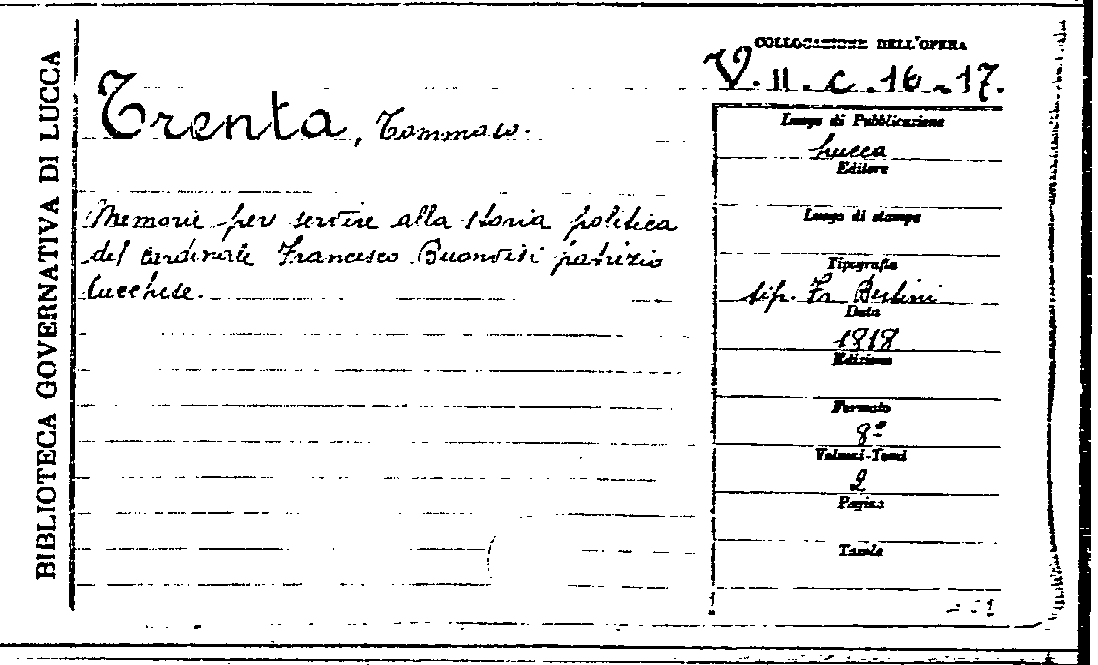 BIBLIOTECA GOVERNATIVA DI LUCCA
COLLOCAZIONE DELL'OPERA
V. II. c. 16-17.
Trenta, Tommaso.
Memorie per servire alla storia politica
del cardinale Francesco Buonvisi patrizio
lucchese.
Luogo di Pubblicazione
Lucca
Editore
Luogo di stampa
Tipografia
tip. Fr. Bertini
Data
1818
Edizione
Formato
8°
Volumi-Tomi
2
Pagine
Tavole